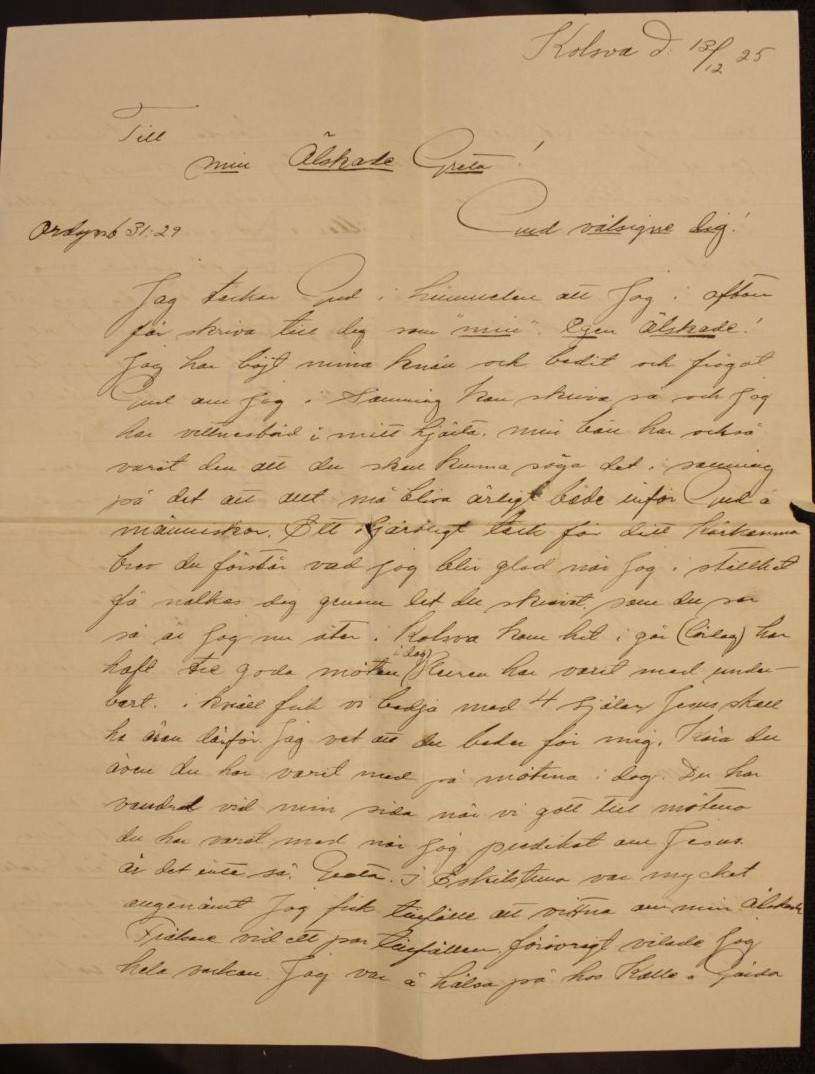 Kolsva d. 13/12 25
Till
min Älskade Greta!
Ordspråk 31:29
Gud välsigne dig!
Jag tackar Gud i himmelen att jag i afton
får skriva till dig som "min" Egen Älskade!
Jag har böjt mina knän och bedit och frågat
Gud om jag i Sanning kan skriva så och jag
har vittnesbörd i mitt hjärta. min bön har också
varit den att du skall kunna säga det i sanning
på det att allt må bliva ärligt både inför Gud å
människor. Ett hjärtligt tack för ditt kärkomna
brev du förstår vad jag blir glad när jag i stillhet
få nalkas dig genom det du skrivit, som du ser
så är jag nu åter i Kolsva kom hit i går (lördag) har
haft tre goda möten (i dag) Herren har varit med under-
bart. i kväll fick vi bedja med 4 själar Jesus skall
ha äran därför. Jag vet att du beder för mig. Kära du
även du har varit med på mötena i dag. Du har
vandrat vid min sida när vi gått till mötena
du har varit med när jag predikat om Jesus.
är det inte så Greta. I Eskilstuna var mycket
angenämt jag fick tillfälle att vittna om min Älskade
Frälsare vid ett par tillfällen, förövrigt vilade jag
hela veckan. Jag var å hälsa på hos Kalle o